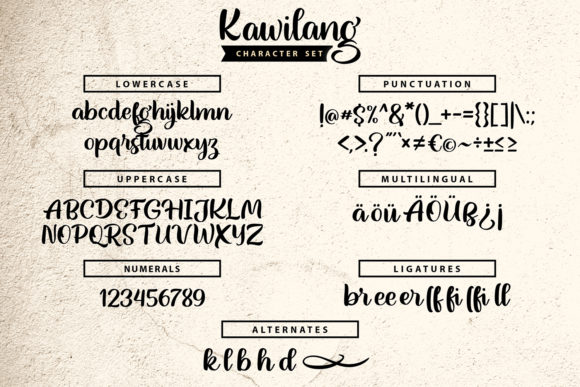 Kawilang
CHARACTER SET
LOWERCASE
abcdefghijklmn
opqrstuvwxyz
UPPERCASE
ABCDEFGHIJKLM
NOPQRSTUVWXYZ
NUMERALS
123456789
PUNCTUATION
!@#$%^&*()_+-={}[]|\:;
<,>.?'"`×≠€©~÷±≤≥
MULTILINGUAL
äöüÄÖÜß¿¡
LIGATURES
br ee er ff fi ffi ll
ALTERNATES
k l b h d